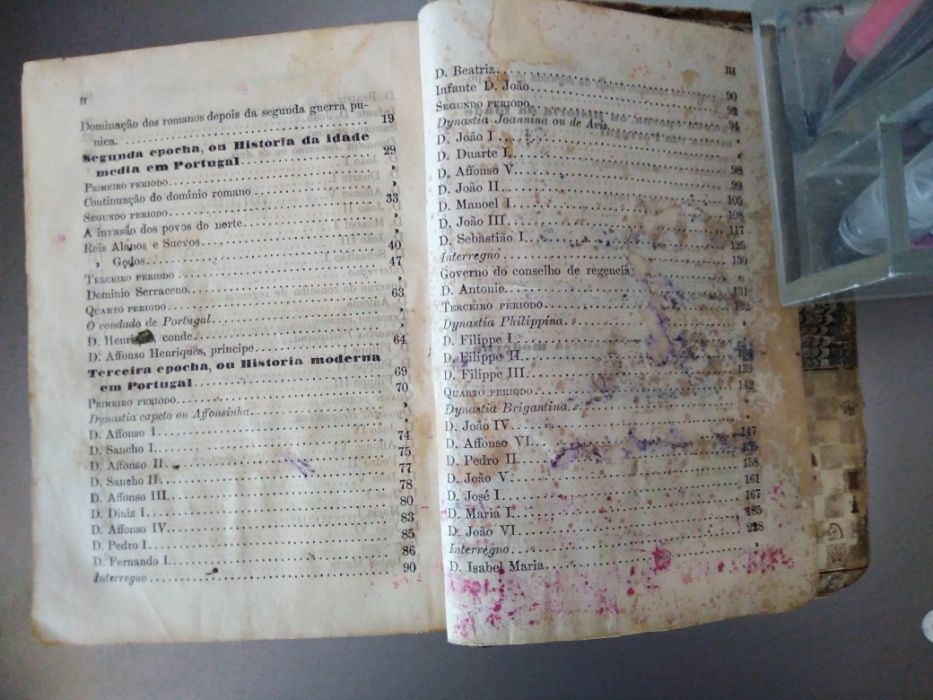 II
Dominação dos romanos depois da segunda guerra pu-
nica. .......................... 19
Segunda epocha, ou Historia da idade
media em Portugal.................... 29
PRIMEIRO PERIODO.......................... »
Continuação do dominio romano................ »
SEGUNDO PERIODO.......................... 33
A invasão dos povos do norte.................. »
Reis Alanos e Suevos......................... »
» Godos................................ 40
TERCEIRO PERIODO......................... 47
Dominio Serraceno........................... »
QUARTO PERIODO........................... 63
O condado de Portugal....................... »
D. Henrique, conde.......................... »
D. Affonso Henriques, principe................ 64
Terceira epocha, ou Historia moderna
em Portugal............................ 69
PRIMEIRO PERIODO......................... 70
Dynastia capeto ou Affonsinha................. »
D. Affonso I................................ »
D. Sancho I................................ 74
D. Affonso II............................... 75
D. Sancho II............................... 77
D. Affonso III.............................. 78
D. Diniz I................................. 80
D. Affonso IV.............................. 83
D. Pedro I................................. 85
D. Fernando I.............................. 86
Interregno................................. 90
III
D. Beatriz................................. 90
Infante D. João............................ 92
SEGUNDO PERIODO......................... 94
Dynastia Joannina ou de Aviz................. »
D. João I.................................. »
D. Duarte I................................ 98
D. Affonso V............................... 99
D. João II................................. 105
D. Manoel I................................ 108
D. João III................................ 117
D. Sebastião I............................. 125
Interregno................................. 130
Governo do conselho de regencia.............. »
D. Antonio................................. 131
TERCEIRO PERIODO......................... 132
Dynastia Philippina......................... »
D. Filippe I................................ »
D. Filippe II............................... 138
D. Filippe III.............................. 139
QUARTO PERIODO........................... 142
Dynastia Brigantina......................... »
D. João IV................................. »
D. Affonso VI.............................. 147
D. Pedro II................................ 155
D. João V.................................. 158
D. José I.................................. 161
D. Maria I................................. 167
D. João VI................................. 185
Interregno................................. 228
D. Isabel Maria............................